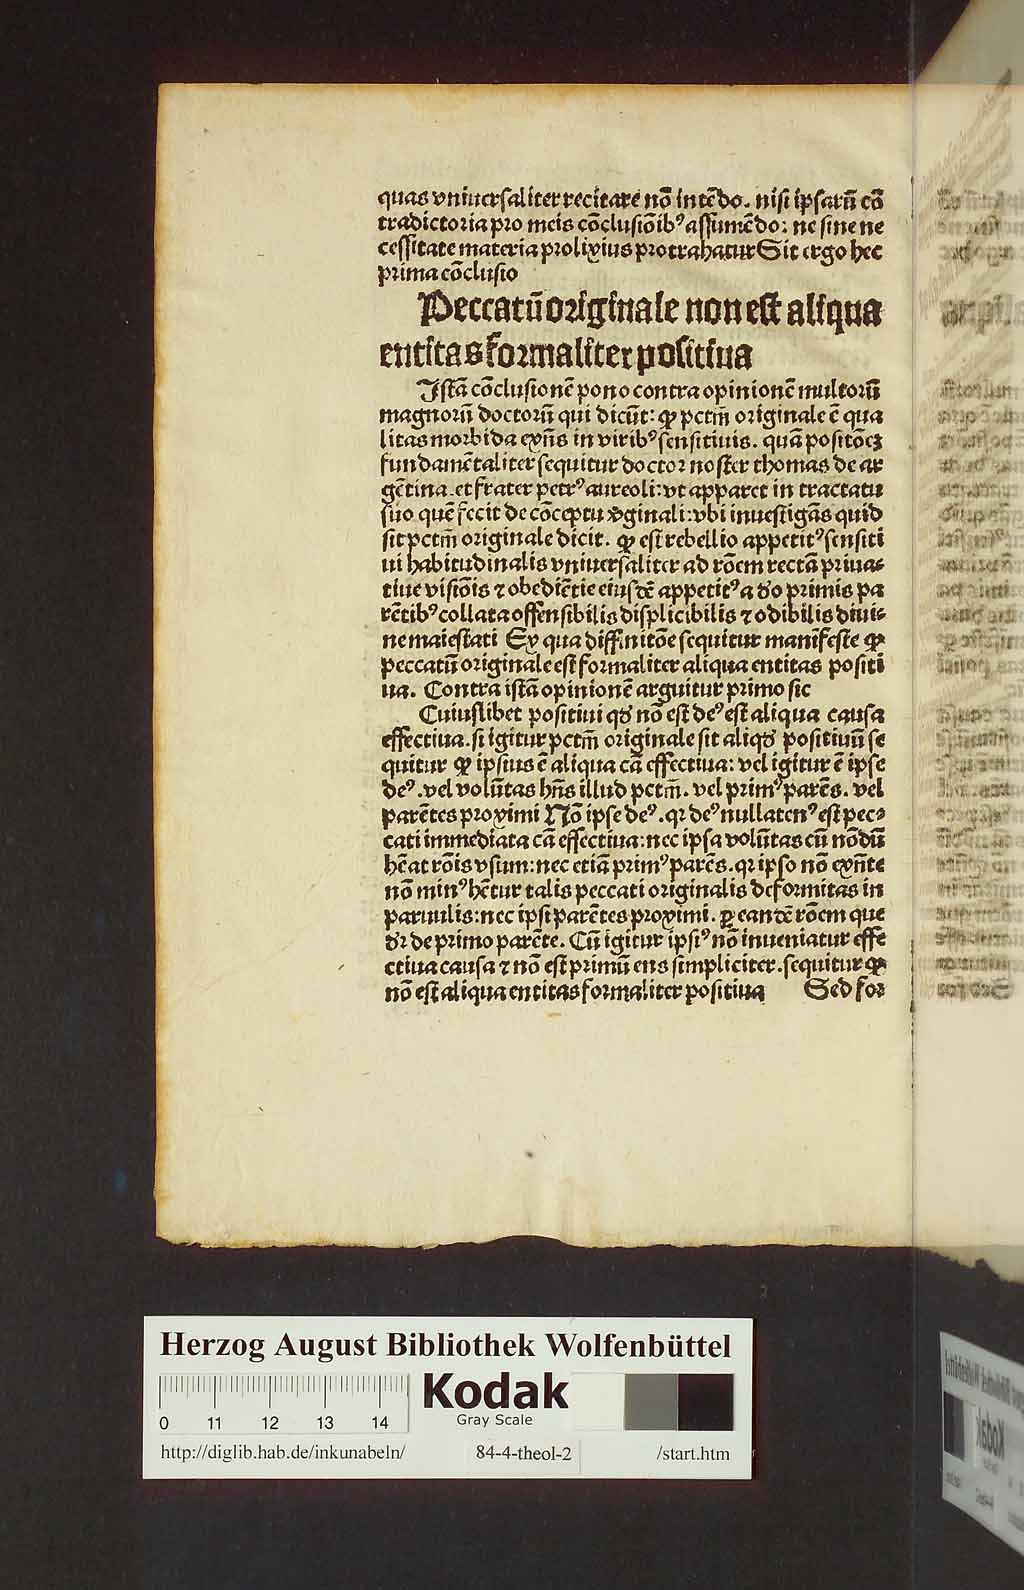 quas vniuersaliter recitare nō intēdo. nisi ipsarū cō
tradictoria pro meis cōclusiōibꝰ assumēdo: ne sine ne
cessitate materia prolixius protrahatur Sit ergo hec
prima cōclusio
Peccatū originale non est aliqua
entitas formaliter positiua
Istā cōclusionē pono contra opinionē multorū
magnorū doctorū qui dicūt: ꝙ pctm̄ originale ē qua
litas morbida exn̄s in viribꝰ sensitiuis. quā positōeꝫ
fundamētaliter sequitur doctor noster thomas de ar
gētina. et frater petrꝰ aureoli: vt apparet in tractatu
suo quē fecit de cōceptu v̓ginali: vbi inuestigās quid
sit pctm̄ originale dicit. ꝙ est rebellio appetitꝰ sensiti
ui habitudinalis vniuersaliter ad rōem rectā priua⸗
tiue visiōis ⁊ obediētie eiusdē appetitꝰ a deo primis pa
rētibꝰ collata offensibilis displicibilis ⁊ odibilis diui⸗
ne maiestati Ex qua diffinitōe sequitur manifeste ꝙ
peccatū originale est formaliter aliqua entitas positi
ua. Contra istā opinionē arguitur primo sic
Cuiuslibet positiui qd̓ nō est deꝰ est aliqua causa
effectiua. si igitur pctm̄ originale sit aliqd̓ positiuū se
quitur ꝙ ipsius ē aliqua cā effectiua: vel igitur ē ipse
deꝰ. vel volūtas hn̄s illud pctm̄. vel primꝰ parēs. vel
parētes proximi Nō ipse deꝰ. qr deꝰ nullatenꝰ est pec⸗
cati immediata cā effectiua: nec ipsa volūtas cū nōdū
hēat rōis vsum: nec etiā primꝰ parēs. qr ipso nō exn̄te
nō minꝰ hētur talis peccati originalis deformitas in
paruulis: nec ipsi parētes proximi. ꝑ eandē rōem que
dr̄ de primo parēte. Cū igitur ipsiꝰ nō inueniatur effe
ctiua causa ⁊ nō est primū ens simpliciter. sequitur ꝙ
nō est aliqua entitas formaliter positiua Sed for
Herzog August Bibliothek Wolfenbüttel
0 11 12 13 14
Kodak
Gray Scale
http://diglib.hab.de/inkunabeln/ 84-4-theol-2 /start.htm